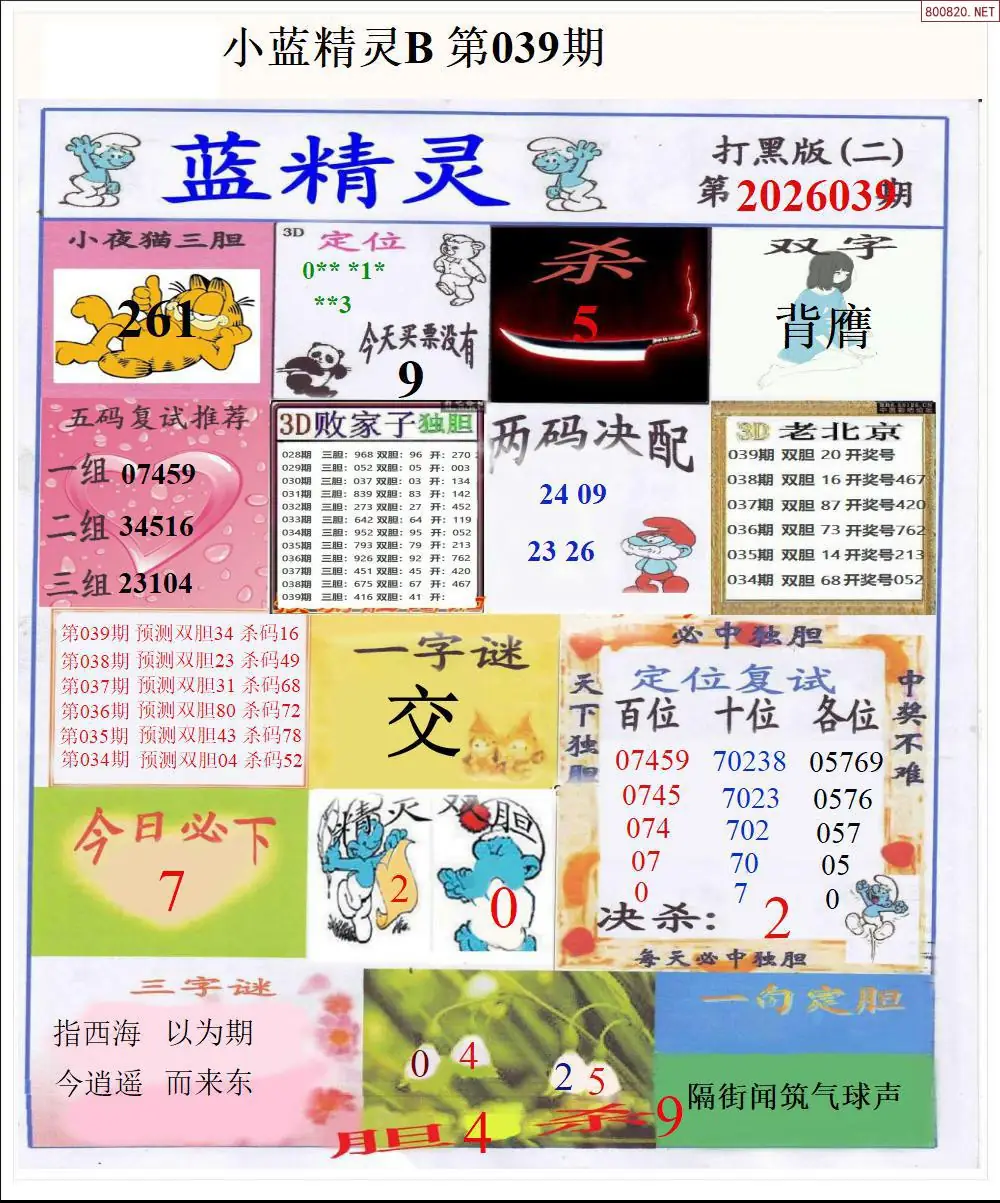 800820.NET
小蓝精灵B 第039期
蓝精灵
打黑版(二)
第2026039期
小夜猫三胆
261
3D 定位
0** *1*
**3
今天买票没有
9
杀
5
双字
背膺
五码复试推荐
一组 07459
二组 34516
三组 23104
3D败家子独胆
028期 三胆: 968 双胆: 96 开: 270
029期 三胆: 052 双胆: 05 开: 003
030期 三胆: 037 双胆: 03 开: 134
031期 三胆: 839 双胆: 83 开: 142
032期 三胆: 273 双胆: 27 开: 452
033期 三胆: 642 双胆: 64 开: 119
034期 三胆: 952 双胆: 95 开: 052
035期 三胆: 793 双胆: 79 开: 213
036期 三胆: 926 双胆: 92 开: 762
037期 三胆: 451 双胆: 45 开: 420
038期 三胆: 675 双胆: 67 开: 467
039期 三胆: 416 双胆: 41 开:
两码决配
24 09
23 26
3D 老北京
039期 双胆 20 开奖号
038期 双胆 16 开奖号467
037期 双胆 87 开奖号420
036期 双胆 73 开奖号762
035期 双胆 14 开奖号213
034期 双胆 68 开奖号052
第039期 预测双胆34 杀码16
第038期 预测双胆23 杀码49
第037期 预测双胆31 杀码68
第036期 预测双胆80 杀码72
第035期 预测双胆43 杀码78
第034期 预测双胆04 杀码52
一字谜
交
必中独胆
天下独胆
中奖不难
定位复试
百位 十位 各位
07459 70238 05769
0745 7023 0576
074 702 057
07 70 05
0 7 0
决杀: 2
每天必中独胆
今日必下
7
精灵 双胆
2 0
三字谜
指西海 以为期
今逍遥 而来东
0 4 2 5
胆 4 杀 9
一句定胆
隔街闻筑气球声